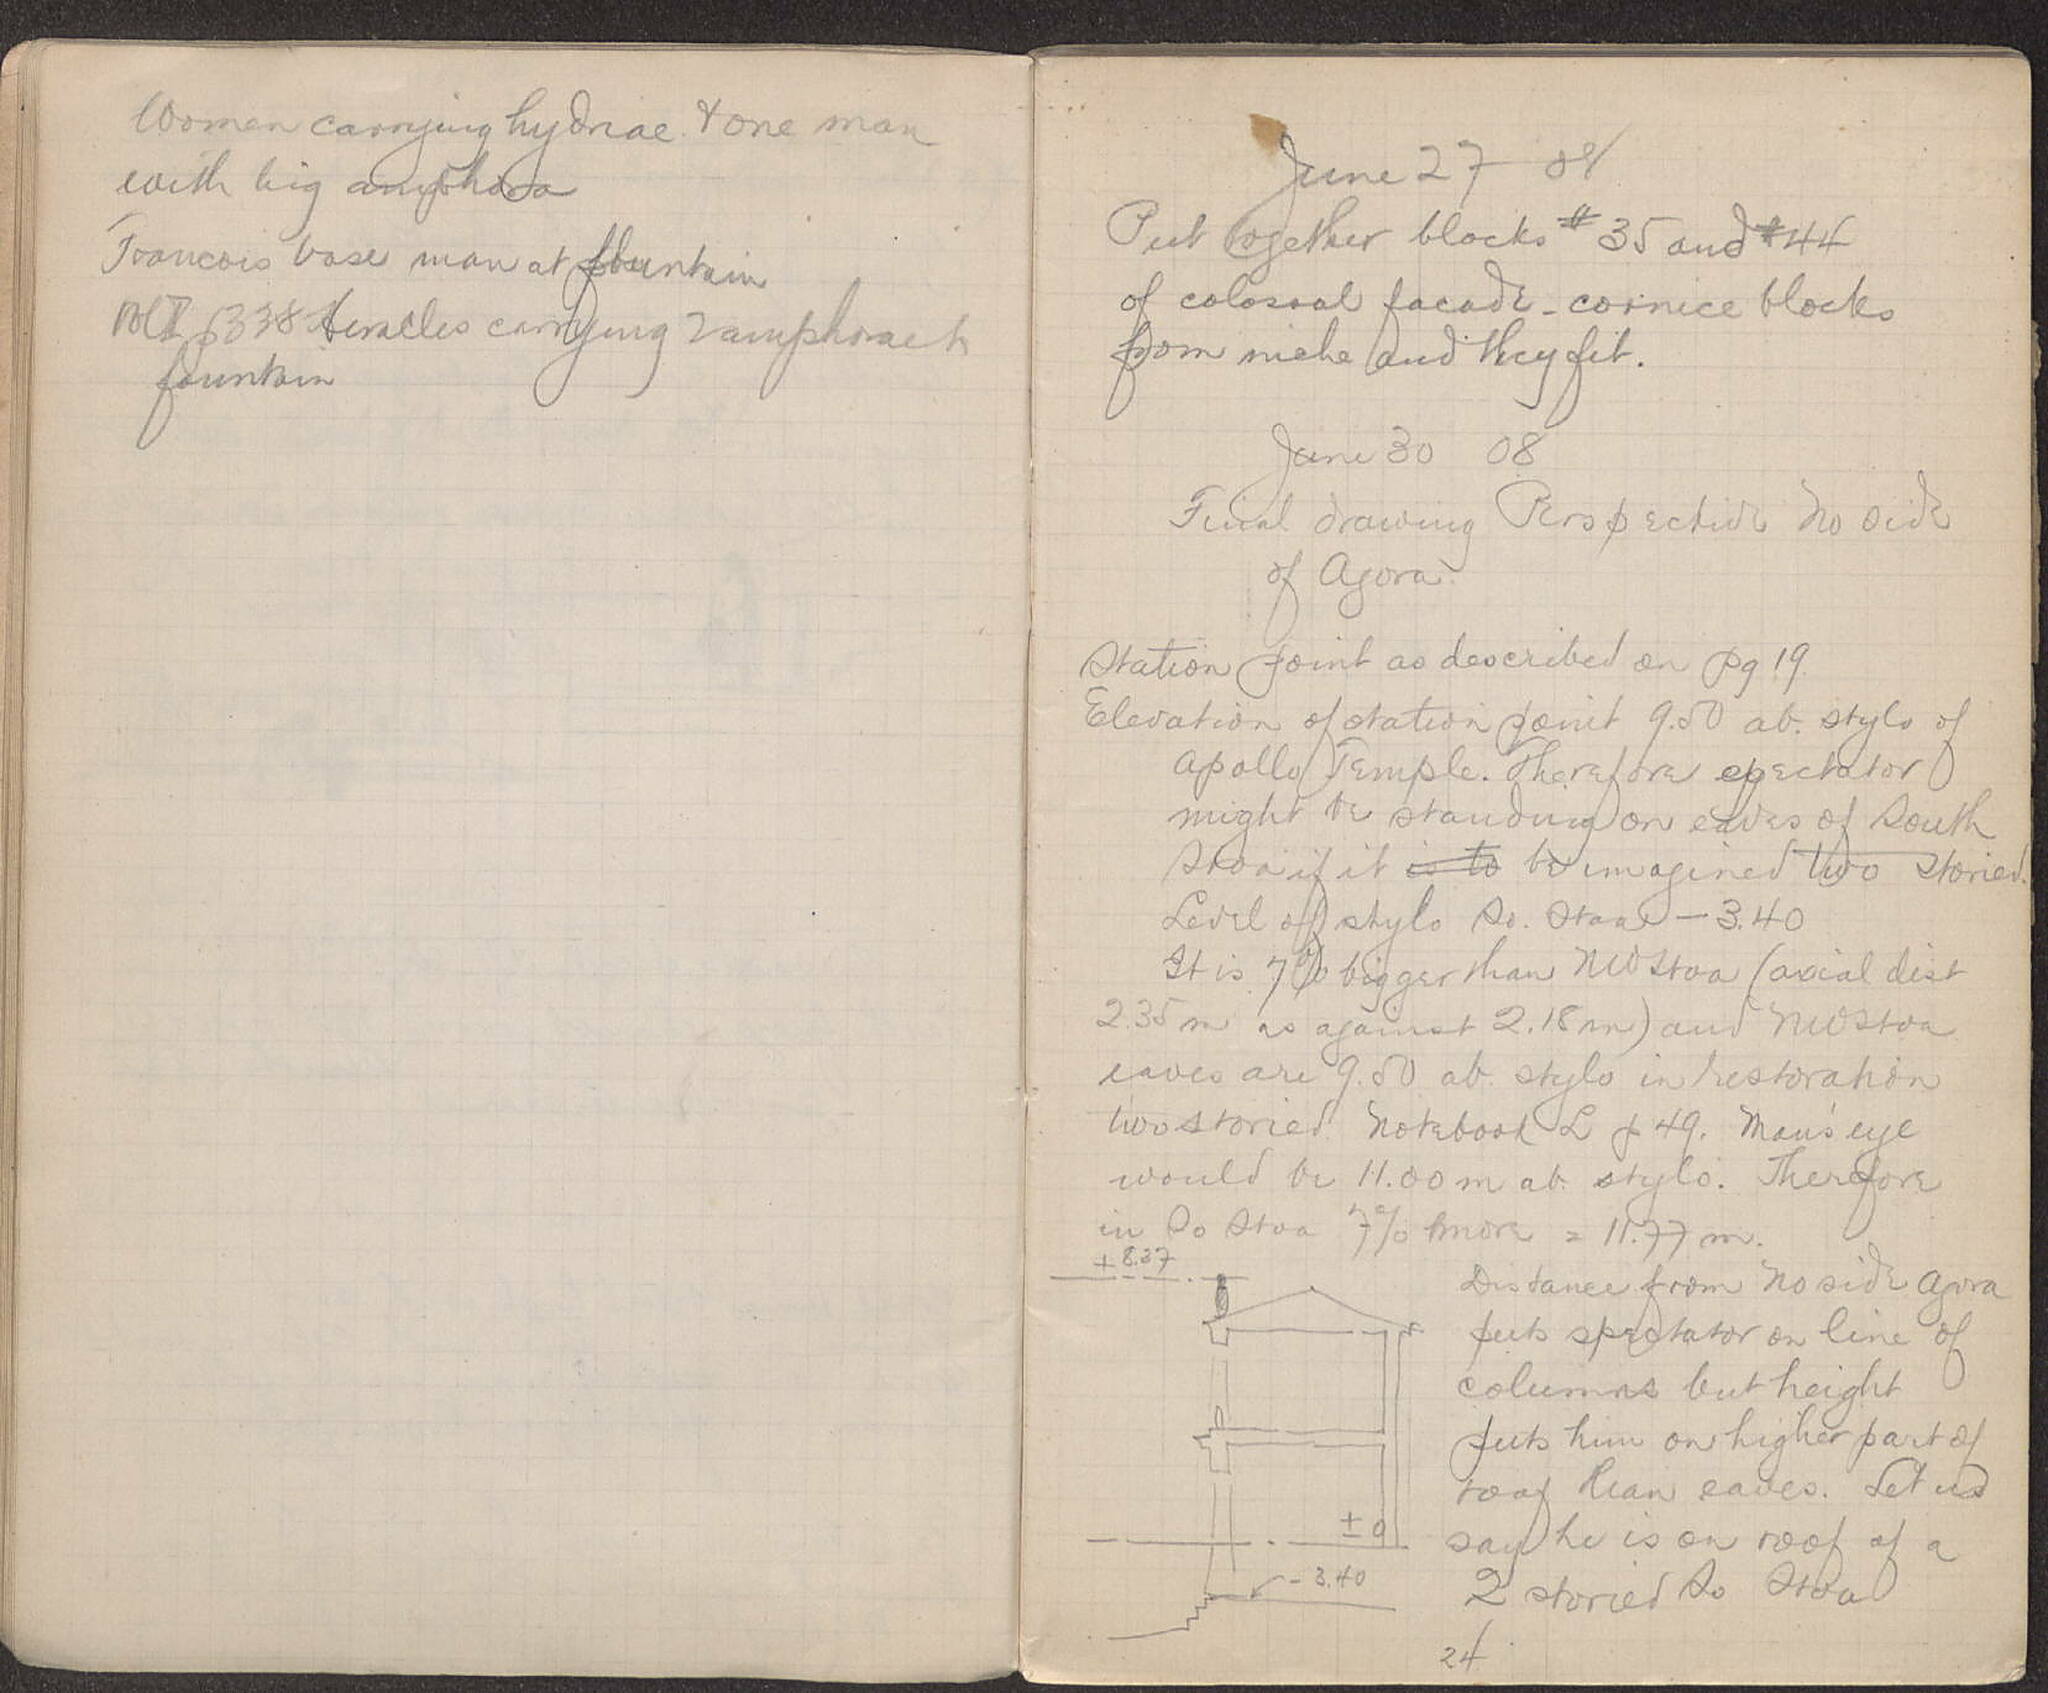 Women carrying hydriae & one man
with big amphora
Francois vase man at fountain
p 338 Heracles carrying 2 amphorae to
fountain
June 27 08
Put together blocks # 35 and #44
of colossal facade - cornice blocks
from niche and they fit.
June 30 08
Final drawing Perspective No side
of Agora.
Station point as described on pg 19
Elevation of station point 9.50 ab. stylo of
Apollo Temple. Therefore spectator
might be standing on eaves of South
Stoa if it is to be imagined two storied.
Level of stylo So. Stoa - 3.40
It is 7% bigger than NW Stoa (axial dist
2.35 m as against 2.18 m) and NW Stoa
eaves are 9.50 ab. stylo in restoration
two storied Notebook L p 49. Man's eye
would be 11.00 m ab. stylo. Therefore
in So Stoa 7% more = 11.77 m.
+ 8.37
Distance from No side Agora
puts spectator on line of
columns but height
puts him on higher part of
roof than eaves. Let us
say he is on roof of a
2 storied So Stoa
± 0
- 3.40
24